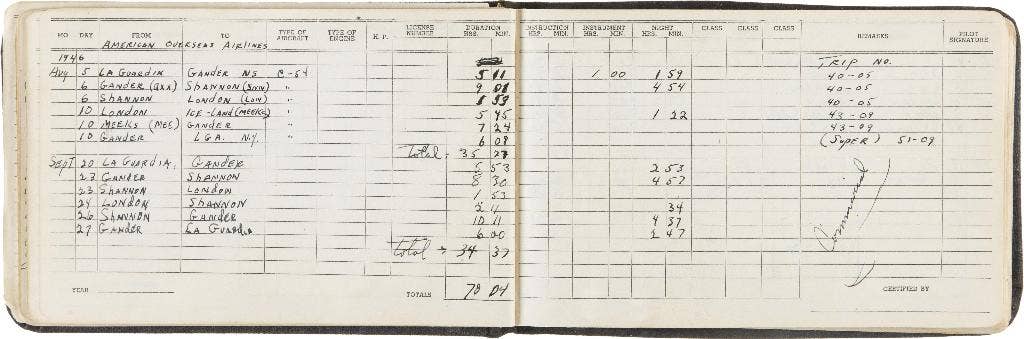 MO DAY FROM TO TYPE OF AIRCRAFT TYPE OF ENGINE H.P. LICENSE NUMBER DURATION HRS. MIN. INSTRUCTION HRS. MIN. INSTRUMENT HRS. MIN. NIGHT HRS. MIN. CLASS CLASS CLASS REMARKS PILOT SIGNATURE
AMERICAN OVERSEAS AIRLINES
1946 TRIP NO.
Aug 5 LA GUARDIA GANDER C-54 5 11 1 00 1 59 40-05
6 GANDER (QXX) SHANNON " 9 01 4 54 40-05
6 SHANNON LONDON (LON) " 1 53 40-05
10 LONDON ICE-LAND (MEEKS) " 5 45 1 22 43-09
10 MEEKS (MEE) GANDER " 7 24 43-09
10 GANDER LGA. N.Y. " 6 09 (SUPER) 51-09
Total = 35
Sept 20 LA GUARDIA, GANDER 5 53 2 53
23 GANDER SHANNON 8 30 4 57
23 SHANNON LONDON 1 53
24 LONDON SHANNON 34
26 SHANNON GANDER 10 11 4 37
27 GANDER LA GUARDIA 6 00 2 47
Commercial
total → 34 37
YEAR TOTALS 70 04 CERTIFIED BY